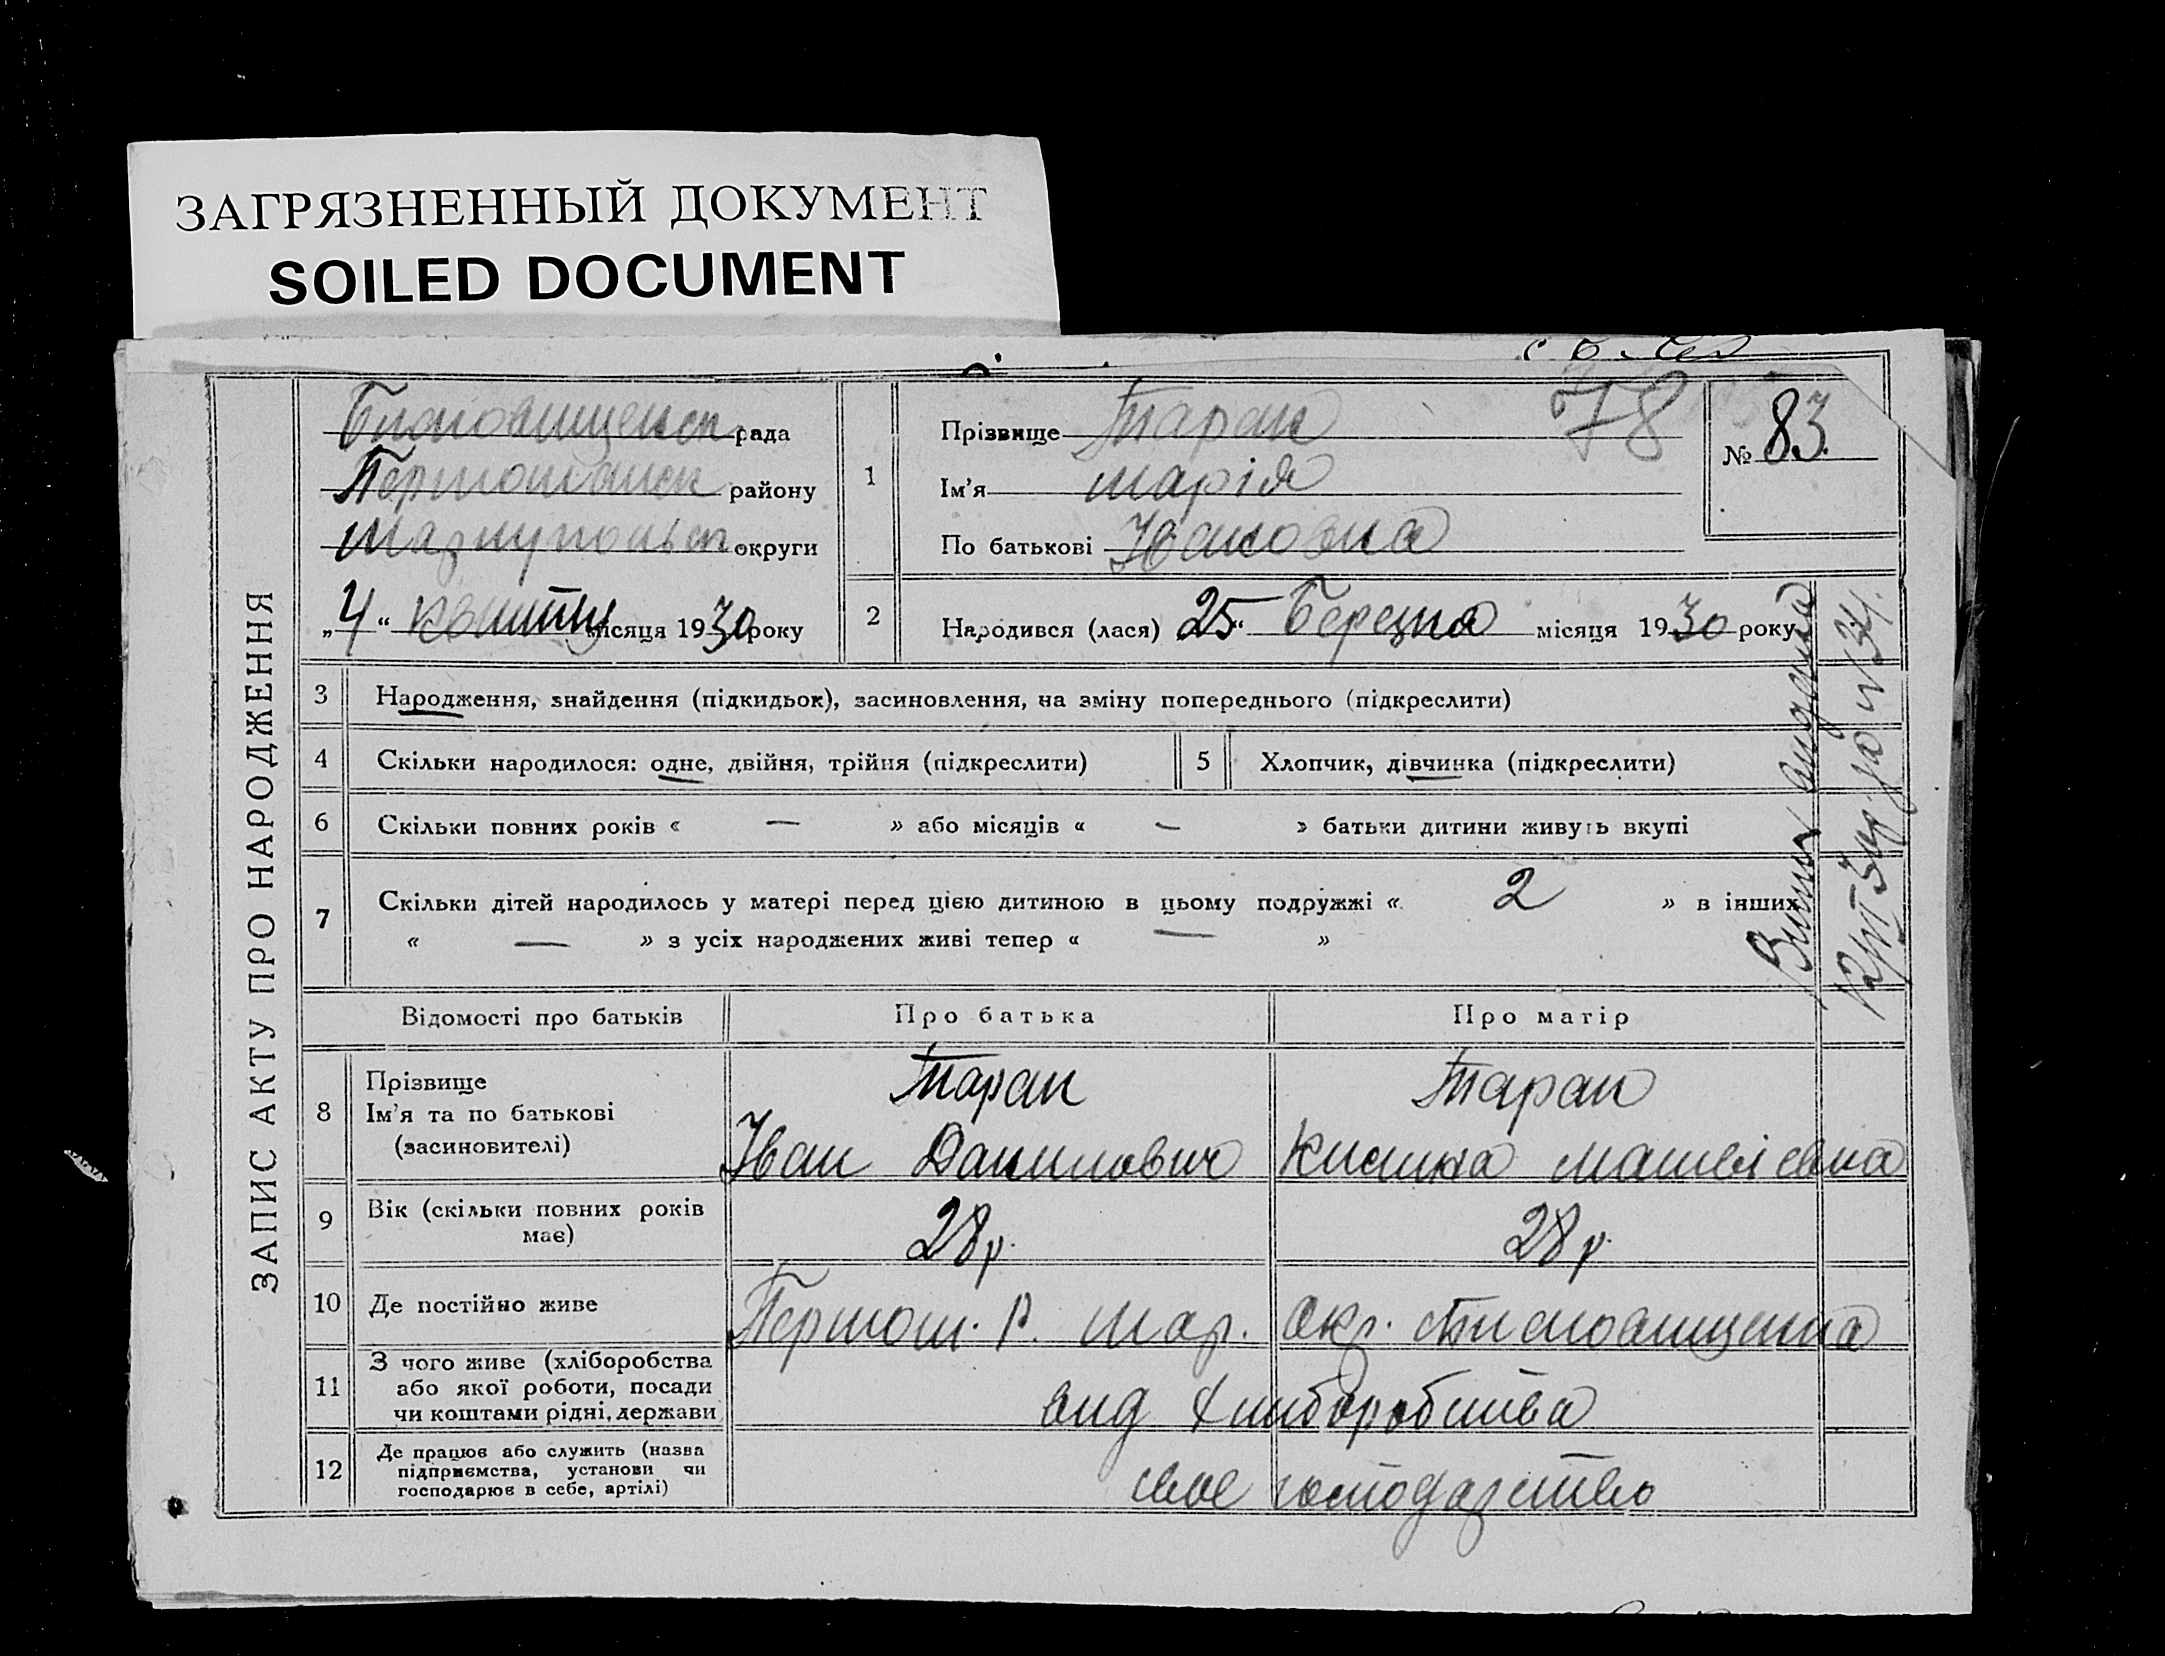 ЗАГРЯЗНЕННЫЙ ДОКУМЕНТ
SOILED DOCUMENT
ЗАПИС АКТУ ПРО НАРОДЖЕННЯ
рада
району
округи
„4“ місяця 1930 року
78
№ 83
1 Прізвище Таран
Ім'я Марія
По батькові Івановна
2 Народився (лася) „25“ Березня місяця 1930 року
3 Народження, знайдення (підкидьок), засиновлення, на зміну попереднього (підкреслити)
4 Скільки народилося: одне, двійня, трійня (підкреслити)
5 Хлопчик, дівчинка (підкреслити)
6 Скільки повних років « — » або місяців « — » батьки дитини живуть вкупі
7 Скільки дітей народилось у матері перед цією дитиною в цьому подружжі « 2 » в інших
« — » з усіх народжених живі тепер « — »
Відомості про батьків Про батька Про матір
8 Прізвище
Ім'я та по батькові
(засиновителі)
Таран
Іван Данилович
Таран
9 Вік (скільки повних років
має)
28 р.
28 р.
10 Де постійно живе
Першот. Р. Мар. Окр.
11 З чого живе (хліборобства
або якої роботи, посади
чи коштами рідні, держави
від хліборобства
12 Де працює або служить (назва
підприємства, установи чи
господарює в себе, артілі)
своє господарство